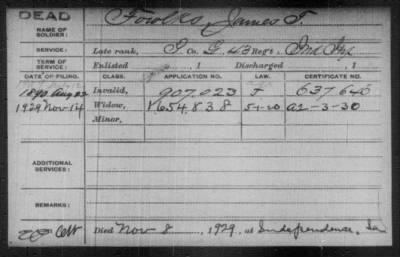 DEAD
NAME OF SOLDIER: Fowlks, James T.
SERVICE: Late rank, P Co. G, 43 Reg't Ind Inf
TERM OF SERVICE: Enlisted , 1 Discharged , 1
DATE OF FILING. CLASS. APPLICATION NO. LAW. CERTIFICATE NO.
1890 Aug 22 Invalid, 907.023 J 637646
1929 Nov-14 Widow, 1654838 5-1-20 A2-3-30
Minor,
ADDITIONAL SERVICES:
REMARKS:
Died Nov 8, 1929, at Independence, Ia